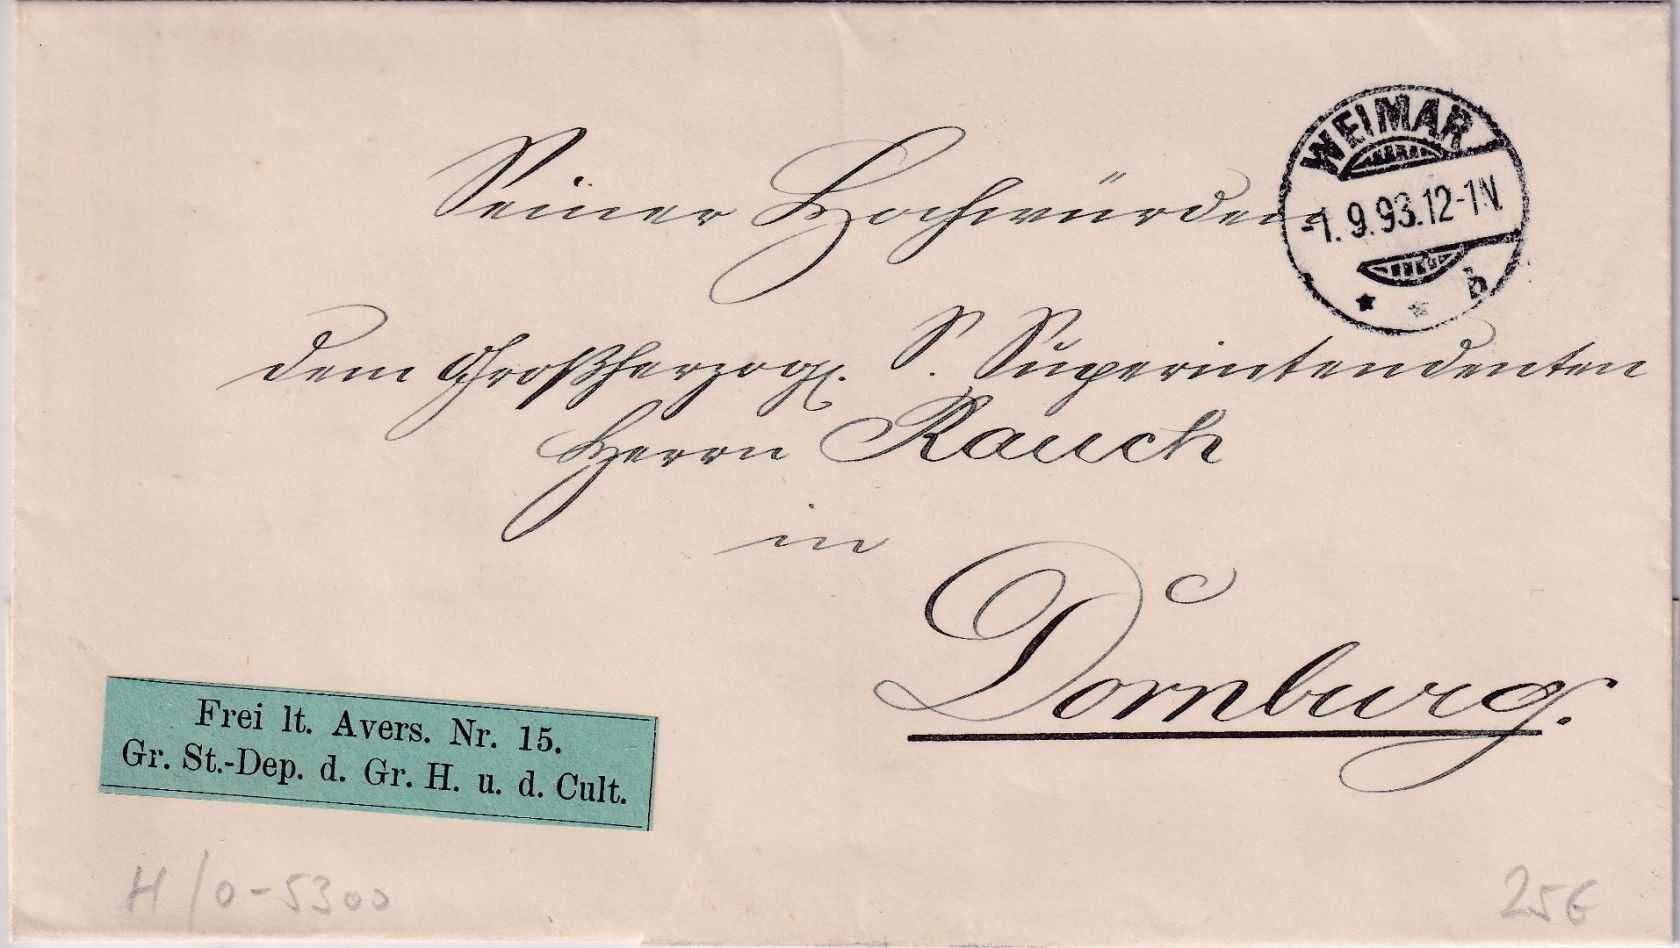 WEIMAR
-1.9.93.12-1N.
* * b
Seiner Hochwürden
dem Großherzogl. S. Superintendenten
Herrn Rauch
in
Dornburg.
Frei lt. Avers. Nr. 15.
Gr. St.-Dep. d. Gr. H. u. d. Cult.
H/0-5300
25€